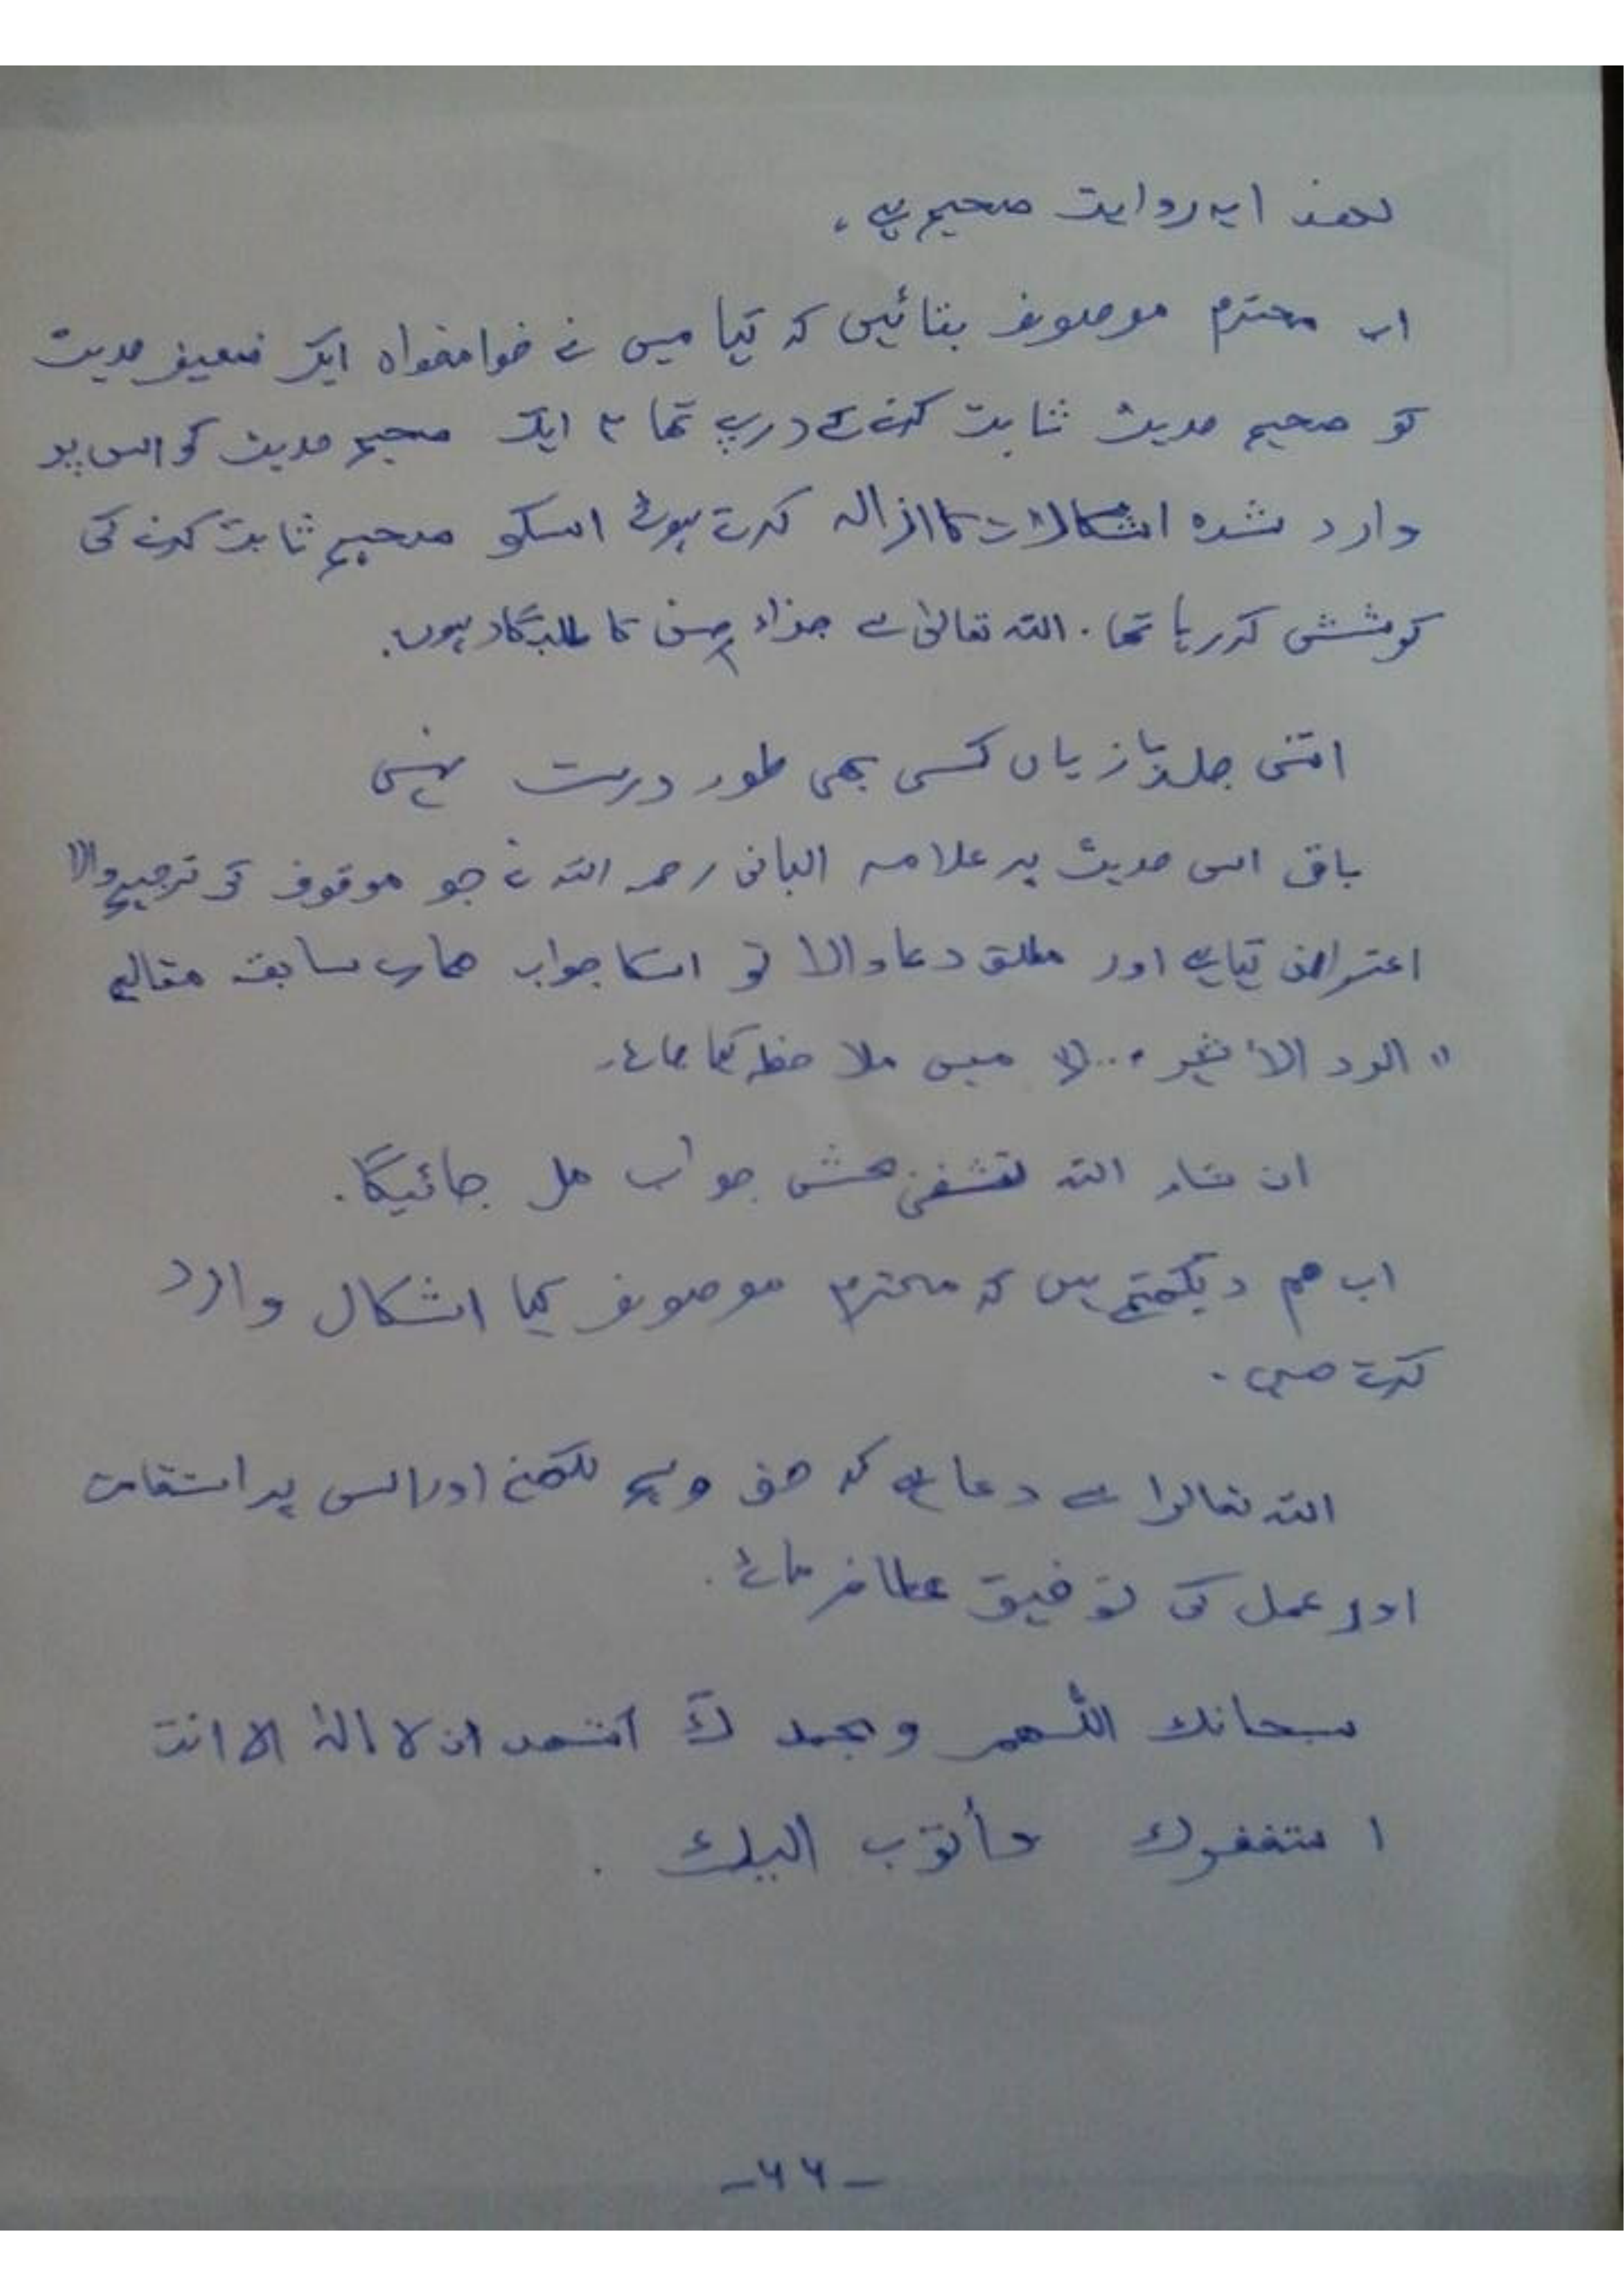 لھذا یہ روایت صحیح ہے۔
اب محترم موصوف بتائیں کہ کیا میں نے خوامخواہ ایک ضعیف حدیث
کو صحیح حدیث ثابت کرنے کے درپے تھا ؟ ایک صحیح حدیث کو اس پر
وارد شدہ اشکالات کا ازالہ کرتے ہوئے اسکو صحیح ثابت کرنے کی
کوشش کر رہا تھا ۔ اللہ تعالیٰ سے جزاء حسن کا طلبگار ہوں ۔
اتنی جلدبازیاں کسی بھی طور درست نہیں
باقی اس حدیث پر علامہ البانی رحمہ اللہ نے جو موقوف کی ترجیح والا
اعتراض کیا ہے اور مطلق دعا والا تو اسکا جواب ھمارے سابقہ مقالے
" الرد الأخیر ... " میں ملاحظہ کیا جائے ۔
ان شاء اللہ تشفی بخش جواب مل جائیگا ۔
اب ھم دیکھتے ہیں کہ محترم موصوف کیا اشکال وارد
کرتے ھیں ۔
اللہ تعالیٰ سے دعا ہے کہ حق لکھنے اور اس پر استقامت
اور عمل کی توفیق عطا فرمائے ۔
سبحانك اللھم وبحمدك أشھد ان لا الہ الا انت
استغفرك وأتوب الیك .
-۶۶-